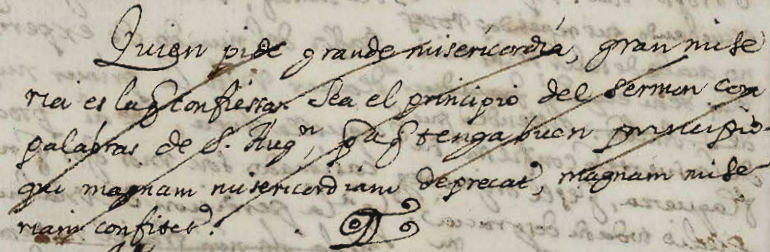 Quien pide grande misericordia, gran mise
ria es la q̃ confiessa. Sea el principio del sermon con
palabras de S. Augⁿ, pª q̃ tenga buen principio.
qui magnam misericordiam deprecat', magnam mise-
riam confitet'.